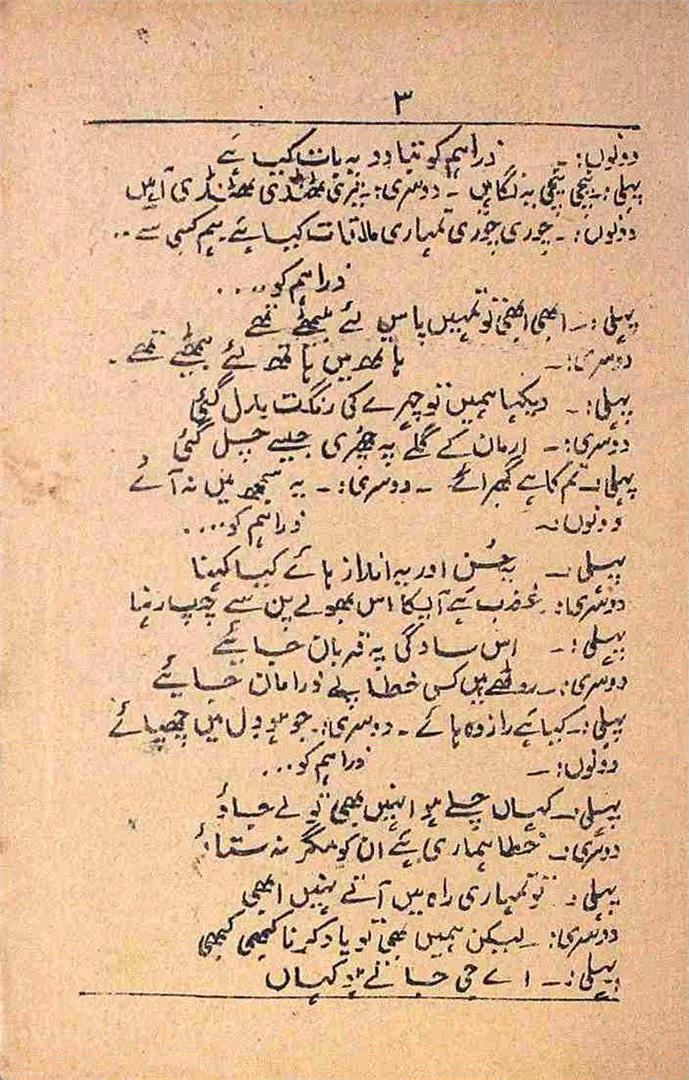 ۳
دونوں:۔ ذرا ہم کو بتا دو یہ بات کیا ہے
پہلی:۔ نیچی نیچی یہ نگاہیں ۔ دوسری:۔ ٹھنڈی ٹھنڈی آہیں
دونوں:۔ چوری چوری تمہاری ملاقات کیا ہے۔ ہم کسی سے ..
ذرا ہم کو ....
پہلی:۔ ابھی ابھی تو تمہیں پاس لئے بیٹھے تھے
دوسری:۔ ہاتھ میں ہاتھ لئے بیٹھے تھے ۔
پہلی:۔ دیکھا ہمیں تو چہرے کی رنگت بدل گئی
دوسری:۔ ارمان کے گلے پہ چھری جیسے چل گئی
پہلی:۔ تم کاہے گھبرائے ۔ دوسری:۔ یہ سمجھ میں نہ آئے
دونوں:۔ ذرا ہم کو ....
پہلی:۔ یہ حُسن اور یہ انداز ہائے کیا کہنا
دوسری:۔ غضب ہے آپکا اس بھولے پن سے چپ رہنا
پہلی:۔ اس سادگی پہ قربان جائیے
دوسری:۔ روٹھے ہیں کس خطا پہ ذرا مان جائیے
پہلی:۔ کیا ہے راز وہ ہائے ۔ دوسری:۔ جو ہو دل میں چھپائے
دونوں:۔ ذرا ہم کو ...
پہلی:۔ کہاں چلے ہو انہیں بھی تو لے جاؤ
دوسری:۔ خطا ہماری ہے ان کو مگر نہ ستاؤ
پہلی:۔ تو تمہاری راہ میں آتے نہیں ابھی
دوسری:۔ لیکن ہمیں بھی تو یاد کرنا کبھی کبھی
پہلی:۔ اے جی جاتے ہو کہاں